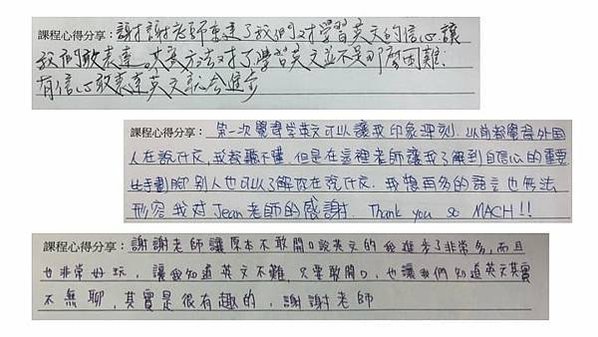 課程心得分享：謝謝老師建建了我們對學習英文的信心.讓
我們敢表達.其實方法對了,學習英文並不是那麼困難.
有信心敢表達英文就會進步
課程心得分享： 第一次覺得學英文可以讓我印象深刻. 以前都覺得外国
人在說什広,我都聽不懂. 但是在這裡老師讓我了解到自信心的重要
比手劃腳 別人也可以了解你在說什広. 我想再多的語言也無法
形容我对Jean老師的感謝. Thank you so MACH!!
課程心得分享：謝謝老師讓原本不敢開口說英文的我進步了非常多,而且
也非常好玩，讓我知道英文不難,只要敢開口，也讓我們知道英文其實
不無聊,其實是很有趣的，謝謝老師